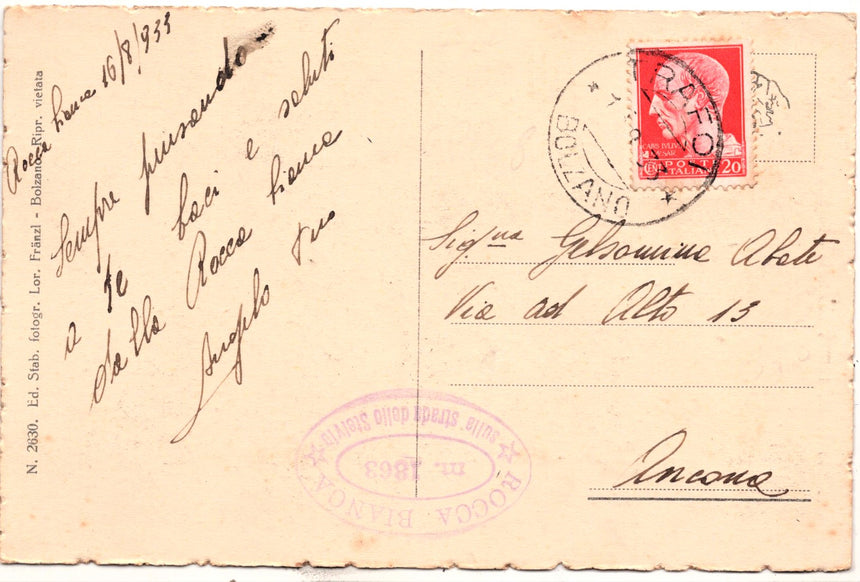 Rocca bianca 16/8/933
Sempre pensando
a te baci e saluti
dalla Rocca bianca
Angelo tuo
N. 2630. Ed. Stab. fotogr. Lor. Fränzl - Bolzano - Ripr. vietata
TRAFOI
* BOLZANO *
CAIVS IVLIVS
CAESAR
POSTE
ITALIANE
CENT. 20
Sig.na Gelsomina Abete
Via ad Alto 13
Ancona
ROCCA BIANCA
m. 1863
sulla strada dello Stelvio